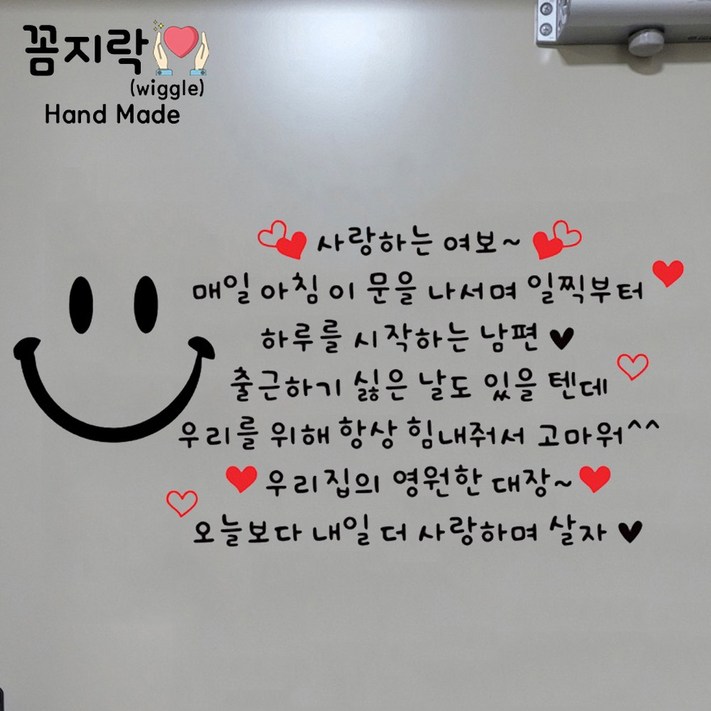 꼼지락
(wiggle)
Hand Made
사랑하는 여보~
매일 아침 이 문을 나서며 일찍부터
하루를 시작하는 남편 ♥
출근하기 싫은 날도 있을 텐데
우리를 위해 항상 힘내줘서 고마워^^
우리집의 영원한 대장~
오늘보다 내일 더 사랑하며 살자 ♥